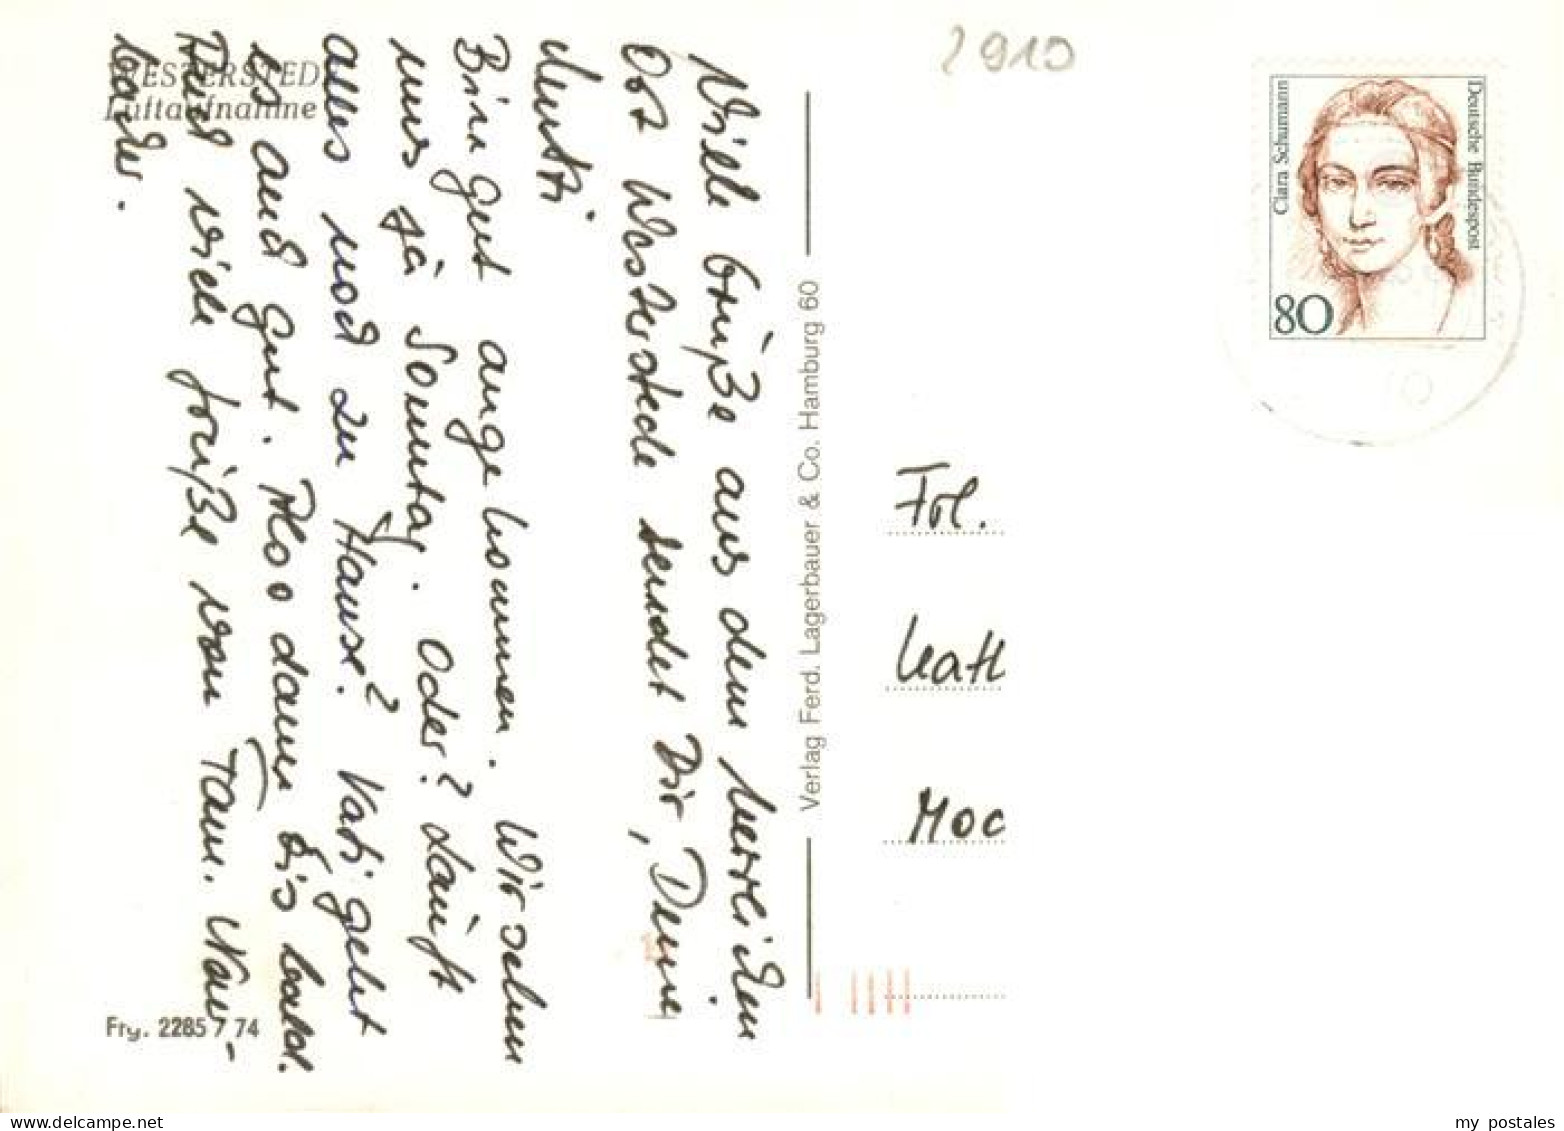 WESTERSTED
Luftaufnahme
Viele Grüße aus dem herrlichen
Ort Westerstede sendet Dir, Deine
Mutti
Bin gut angekommen. Wir sehen
uns ja Sonntag. Oder? Läuft
alles noch zu Hause? Vati geht
es auch gut. Also dann bis bald.
Auch viele Grüße von Fam.
Fty. 2285 7 74
Verlag Ferd. Lagerbauer & Co. Hamburg 60
2910
Clara Schumann
Deutsche Bundespost
80
Frl.
Kath
Hoc
my postales